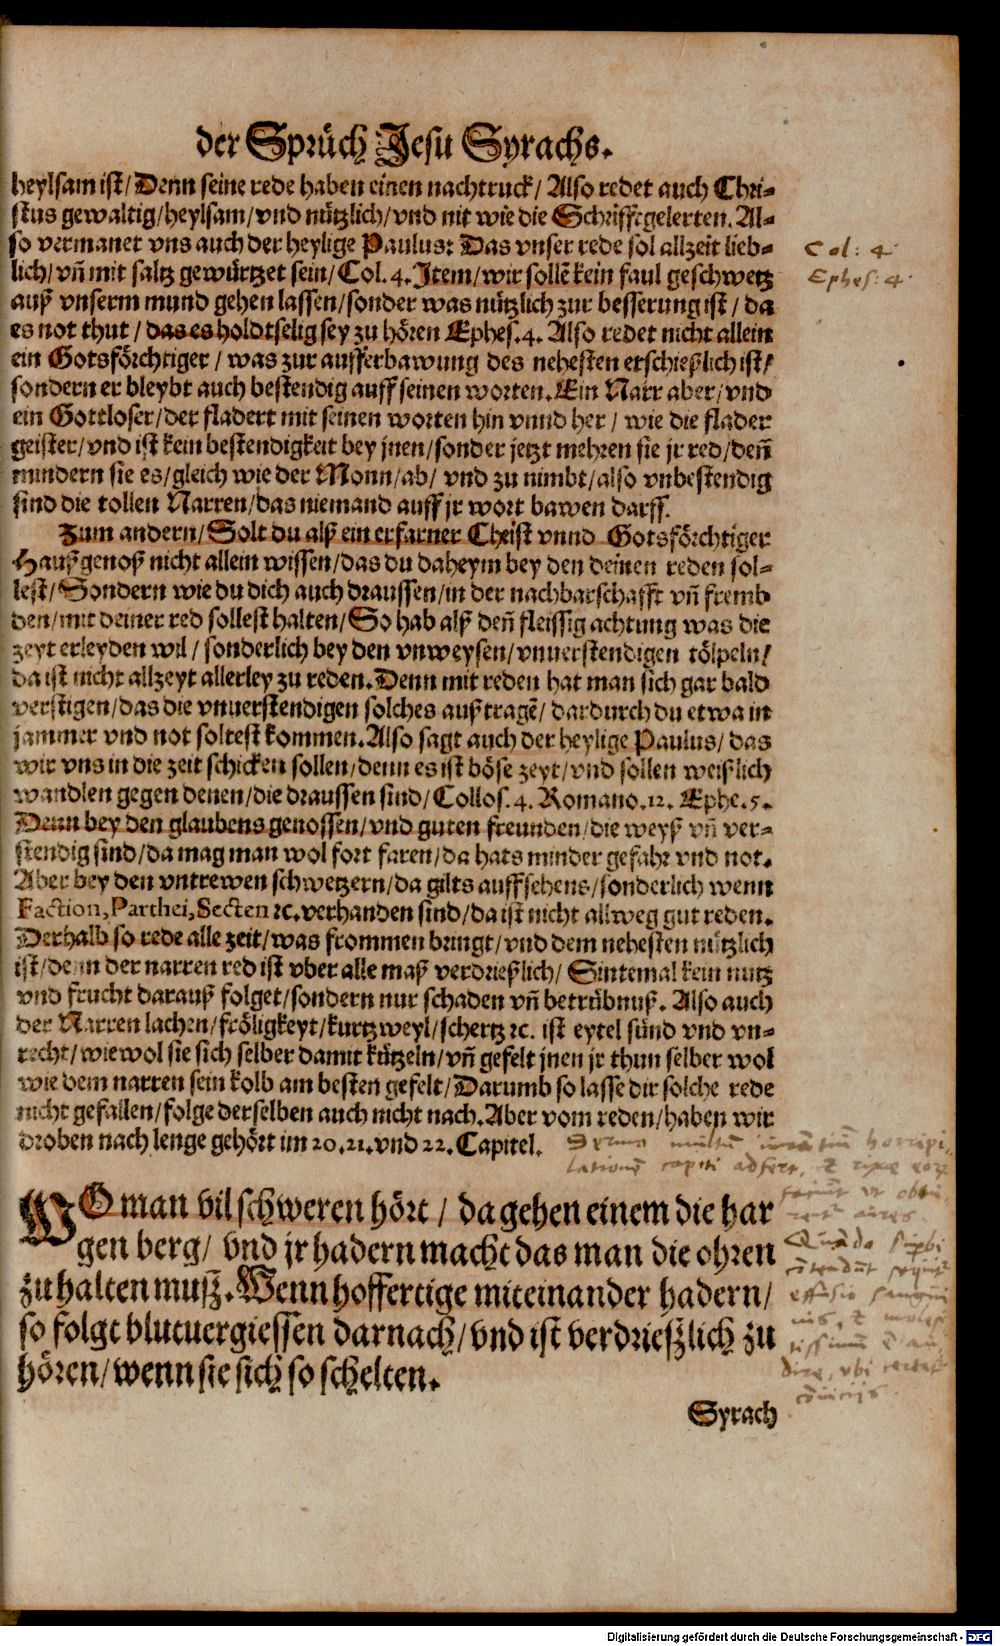 der Sprüch Jesu Syrachs.
heylsam ist/ Denn seine rede haben einen nachtruck/ Also redet auch Chri-
stus gewaltig/heylsam/vnd nützlich/vnd nit wie die Schrifftgelerten. Al-
so vermanet vns auch der heylige Paulus: Das vnser rede sol allzeit lieb-
lich/ vñ mit saltz gewürtzet sein/ Col. 4. Item/ wir sollẽ kein faul geschwetz
auß vnserm mund gehen lassen/sonder was nützlich zur besserung ist/ da
es not thut/ das es holdtselig sey zu hören Ephes. 4. Also redet nicht allein
ein Gotsförchtiger/ was zur aufferbawung des nehesten erschießlich ist/
sondern er bleybt auch bestendig auff seinen worten. Ein Narr aber/ vnd
ein Gottloser/der fladert mit seinen worten hin vnnd her/ wie die flader
geister/ vnd ist kein bestendigkeit bey jnen/sonder jetzt mehren sie jr red/deñ
mindern sie es/gleich wie der Monn/ab/ vnd zu nimbt/also vnbestendig
sind die tollen Narren/das niemand auff jr wort bawen darff.
Zum andern/ Solt du alß ein erfarner Christ vnnd Gotsförchtiger
Haußgenoß nicht allein wissen/das du daheym bey den deinen reden sol-
lest/ Sondern wie du dich auch draussen/in der nachbarschafft vñ fremb
den/mit deiner red sollest halten/ So hab alß deñ fleissig achtung was die
zeyt erleyden wil/ sonderlich bey den vnweysen/vnuerstendigen tölpeln/
da ist nicht allzeyt allerley zu reden. Denn mit reden hat man sich gar bald
verstigen/das die vnuerstendigen solches auß tragẽ/ dardurch du etwa in
jammer vnd not soltest kommen. Also sagt auch der heylige Paulus/ das
wir vns in die zeit schicken sollen/denn es ist böse zeyt/vnd sollen weißlich
wandlen gegen denen/die draussen sind/ Collos. 4. Romano. 12. Ephe. 5.
Denn bey den glaubens genossen/vnd guten freunden/die weyß vñ ver-
stendig sind/da mag man wol fort faren/da hats minder gefahr vnd not.
Aber bey den vntrewen schwetzern/da gilts auffsehens/sonderlich wenn
Faction, Parthei, Secten ꝛc. verhanden sind/da ist nicht allweg gut reden.
Derhalb so rede alle zeit/was frommen bringt/vnd dem nehesten nützlich
ist/denn der narren red ist vber alle maß verdrießlich/ Sintemal kein nutz
vnd frucht darauß folget/sondern nur schaden vñ betrübnuß. Also auch
der Narren lachen/fröligkeyt/kurtzweyl/schertz ꝛc. ist eytel sünd vnd vn-
recht/wiewol sie sich selber damit kützeln/vñ gefelt jnen jr thun selber wol
wie dem narren sein kolb am besten gefelt/ Darumb so lasse dir solche rede
nicht gefallen/folge derselben auch nicht nach. Aber vom reden/haben wir
droben nach lenge gehört im 20. 21. vnd 22. Capitel.
WO man vil schweren hört/ da gehen einem die har
gen berg/ vnd jr hadern macht das man die ohren
zu halten muß. Wenn hoffertige miteinander hadern/
so folgt blutuergiessen darnach/vnd ist verdrießlich zu
hören/wenn sie sich so schelten.
Syrach
Col: 4
Ephes: 4.
Sermo multũ iurantiũ horripi-
lationẽ capiti adfert, et rixæ
faciũt vt obtu-
rent aures.
Quãdo supbi
cõtendũt sequit
effusio sangui
nis, et moles
tissimũ ẽ au
dire, vbi certãt
cõuicijs.
Digitalisierung gefördert durch die Deutsche Forschungsgemeinschaft - DFG